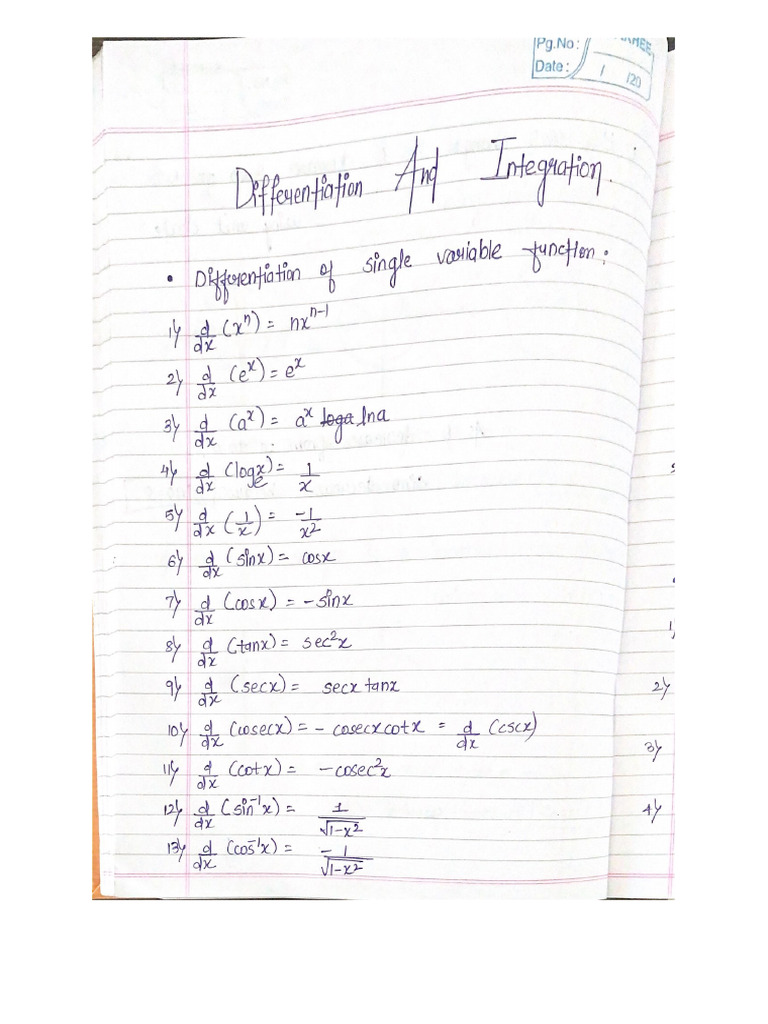 Pg.No:
Date: / /20
Differentiation And Integration.
• Differentiation of single variable function:
1) d/dx (xⁿ) = nxⁿ⁻¹
2) d/dx (eˣ) = eˣ
3) d/dx (aˣ) = aˣ loga lna
4) d/dx (logₑx) = 1/x
5) d/dx (1/x) = -1/x²
6) d/dx (sinx) = cosx
7) d/dx (cosx) = -sinx
8) d/dx (tanx) = sec²x
9) d/dx (secx) = secx tanx
10) d/dx (cosecx) = - cosecx cotx = d/dx (cscx)
11) d/dx (cotx) = -cosec²x
12) d/dx (sin⁻¹x) = 1/√1-x²
13) d/dx (cos⁻¹x) = -1/√1-x²
1)
2)
3)
4)